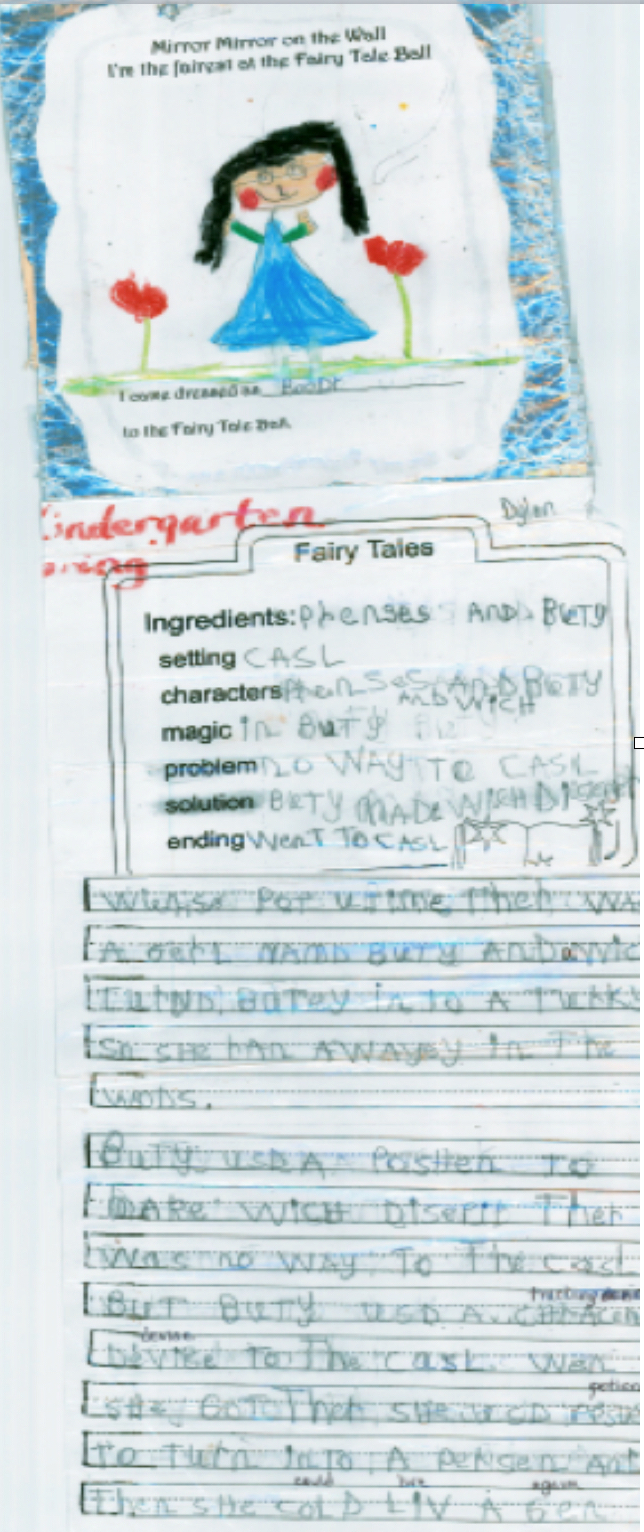 Mirror Mirror on the Wall
I'm the fairest at the Fairy Tale Ball
I come dressed as
to the Fairy Tale Ball
Dylan
Kindergarten
Fairy Tales
Ingredients: PhenSes AND BUTY
setting CASL
characters PhenSes AND BUTY
AND WICH
magic in BUTY
problem NO WAY TO CASL
solution BUTY MADE WICH
ending WenT TO CASL
POT U TIME Ther WA
A GerL NAMD BUTY AND A WIC
BUTEY in TO A
SO SHE RAN AWAYEY in The
BUTY USD A POSHEN TO
MAKE WICH Ther
WAS NO WAY TO The CASL
tracking
BUT BUTY USD A
device
DEVICE TO The CASL WEN
potion
SHE GOT Ther SHE USD
TO Turn INTO A PENSEN AND
could live again
Then SHE COLD LIV A GEN